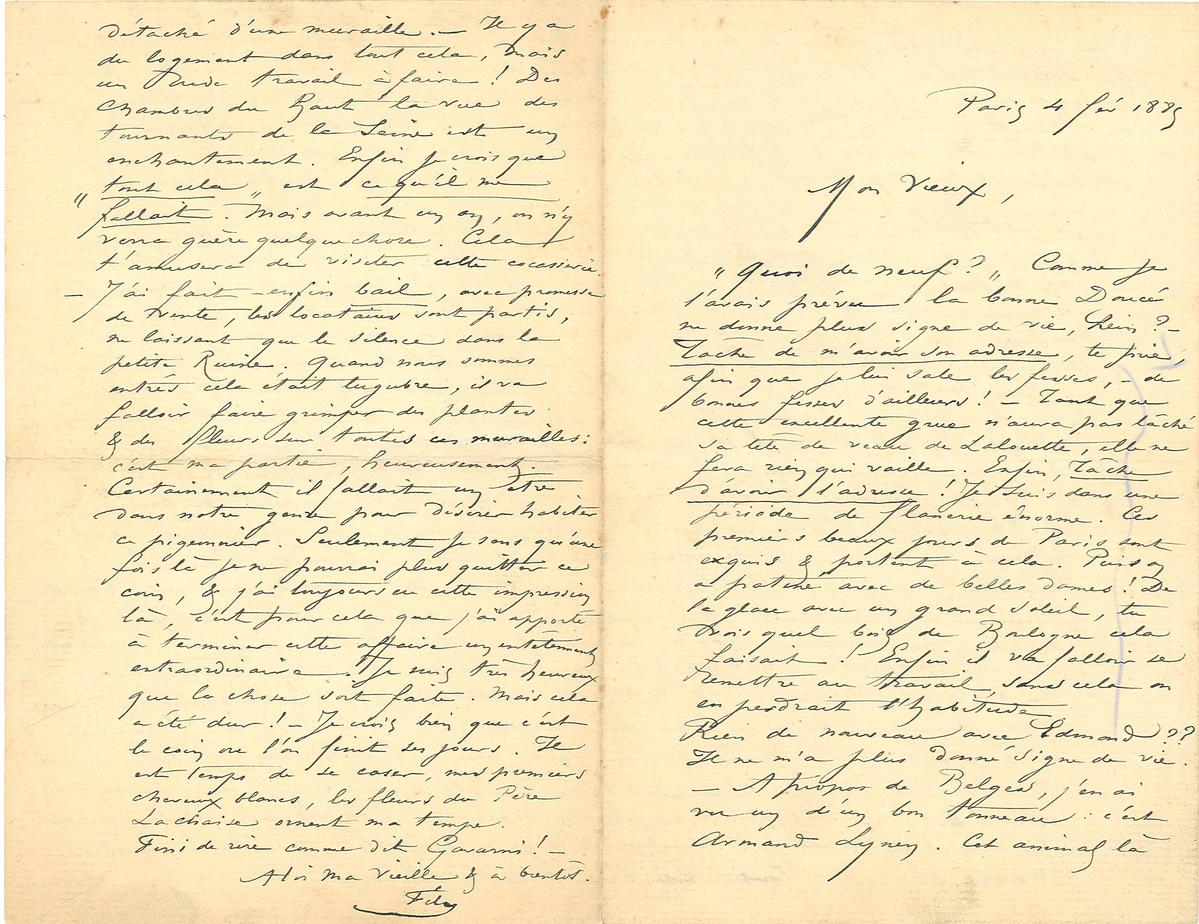 Paris 4 fév 1885
Mon Vieux,
"Quoi de neuf?" Comme je
l'avais prévu la bonne Doucé
ne donne plus signe de vie, hein? –
Tâche de m'avoir son adresse, te prie,
afin que je lui sale les fesses, – de
bonnes fesses d'ailleurs! – Tant que
cette excellente grue n'aura pas lâché
sa tête de veau de Lalouette, elle ne
fera rien qui vaille. Enfin, Tâche
d'avoir l'adresse! Je suis dans une
période de flanerie énorme. Ces
premiers beaux jours de Paris sont
exquis & portent à cela. Puis on
a patiné avec de belles dames! De
la glace avec un grand soleil, tu
vois quel bois de Boulogne cela
faisait! Enfin il va falloir se
remettre au travail, sans cela on
en perdrait l'habitude
Rien de nouveau avec Edmond??
Il ne m'a plus donné signe de vie.
– A propos de Belges, j'en ai
vu un d'un bon tonneau: c'est
Armand Lynen. Cet animal là
détaché d'une muraille. – Il y a
du logement dans tout cela, mais
un rude travail à faire! Des
chambres du haut la vue des
tournants de la Seine est un
enchantement. Enfin je crois que
"tout cela" est ce qu'il me
fallait. Mais avant un an, on n'y
verra guère quelque chose. Cela
t'amusera de visiter cette cocasserie.
– J'ai fait – enfin bail, avec promesse
de vente, les locataires sont partis,
ne laissant que le silence dans la
petite Ruine. Quand nous sommes
entrés cela était lugubre, il va
falloir faire grimper des plantes
& des fleurs sur toutes ces murailles:
c'est ma partie, heureusement.
Certainement il fallait un être
dans notre genre pour désirer habiter
ce pigeonnier. Seulement je sens qu'une
fois là je ne pourrai plus quitter ce
coin, & j'ai toujours eu cette impression
là, c'est pour cela que j'ai apporté
à terminer cette affaire un entêtement
extraordinaire. Je suis très heureux
que la chose soit faite. Mais cela
a été dur! – Je crois bien que c'est
le coin où l'on finit ses jours. Il
est temps de se caser, mes premiers
cheveux blancs, les fleurs du Père
Lachaise ornent ma tempe.
Fini de rire comme dit Gavarni! –
A toi ma vieille & à bientôt.
Fély